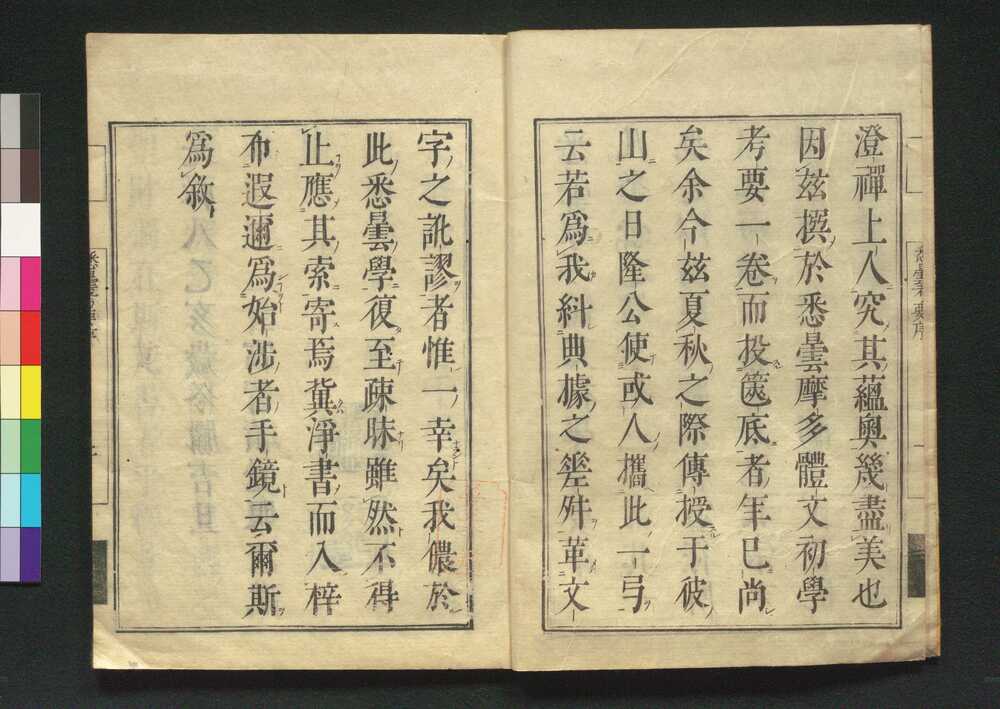 澄禪上人究其蘊奧幾盡美也
因玆撰於悉曇摩多體文初學
考要一卷而投篋底者年已尚
矣余今玆夏秋之際傳授于彼
山之日隆公使或人攜此一弓
云若爲我糾典據之舛革文
字之訛謬者惟一幸矣我儂於
此悉曇學復至疎昧雖然不得
止應其索寄焉冀淨書而入梓
布遐邇爲始涉者手鏡云爾斯
爲敘